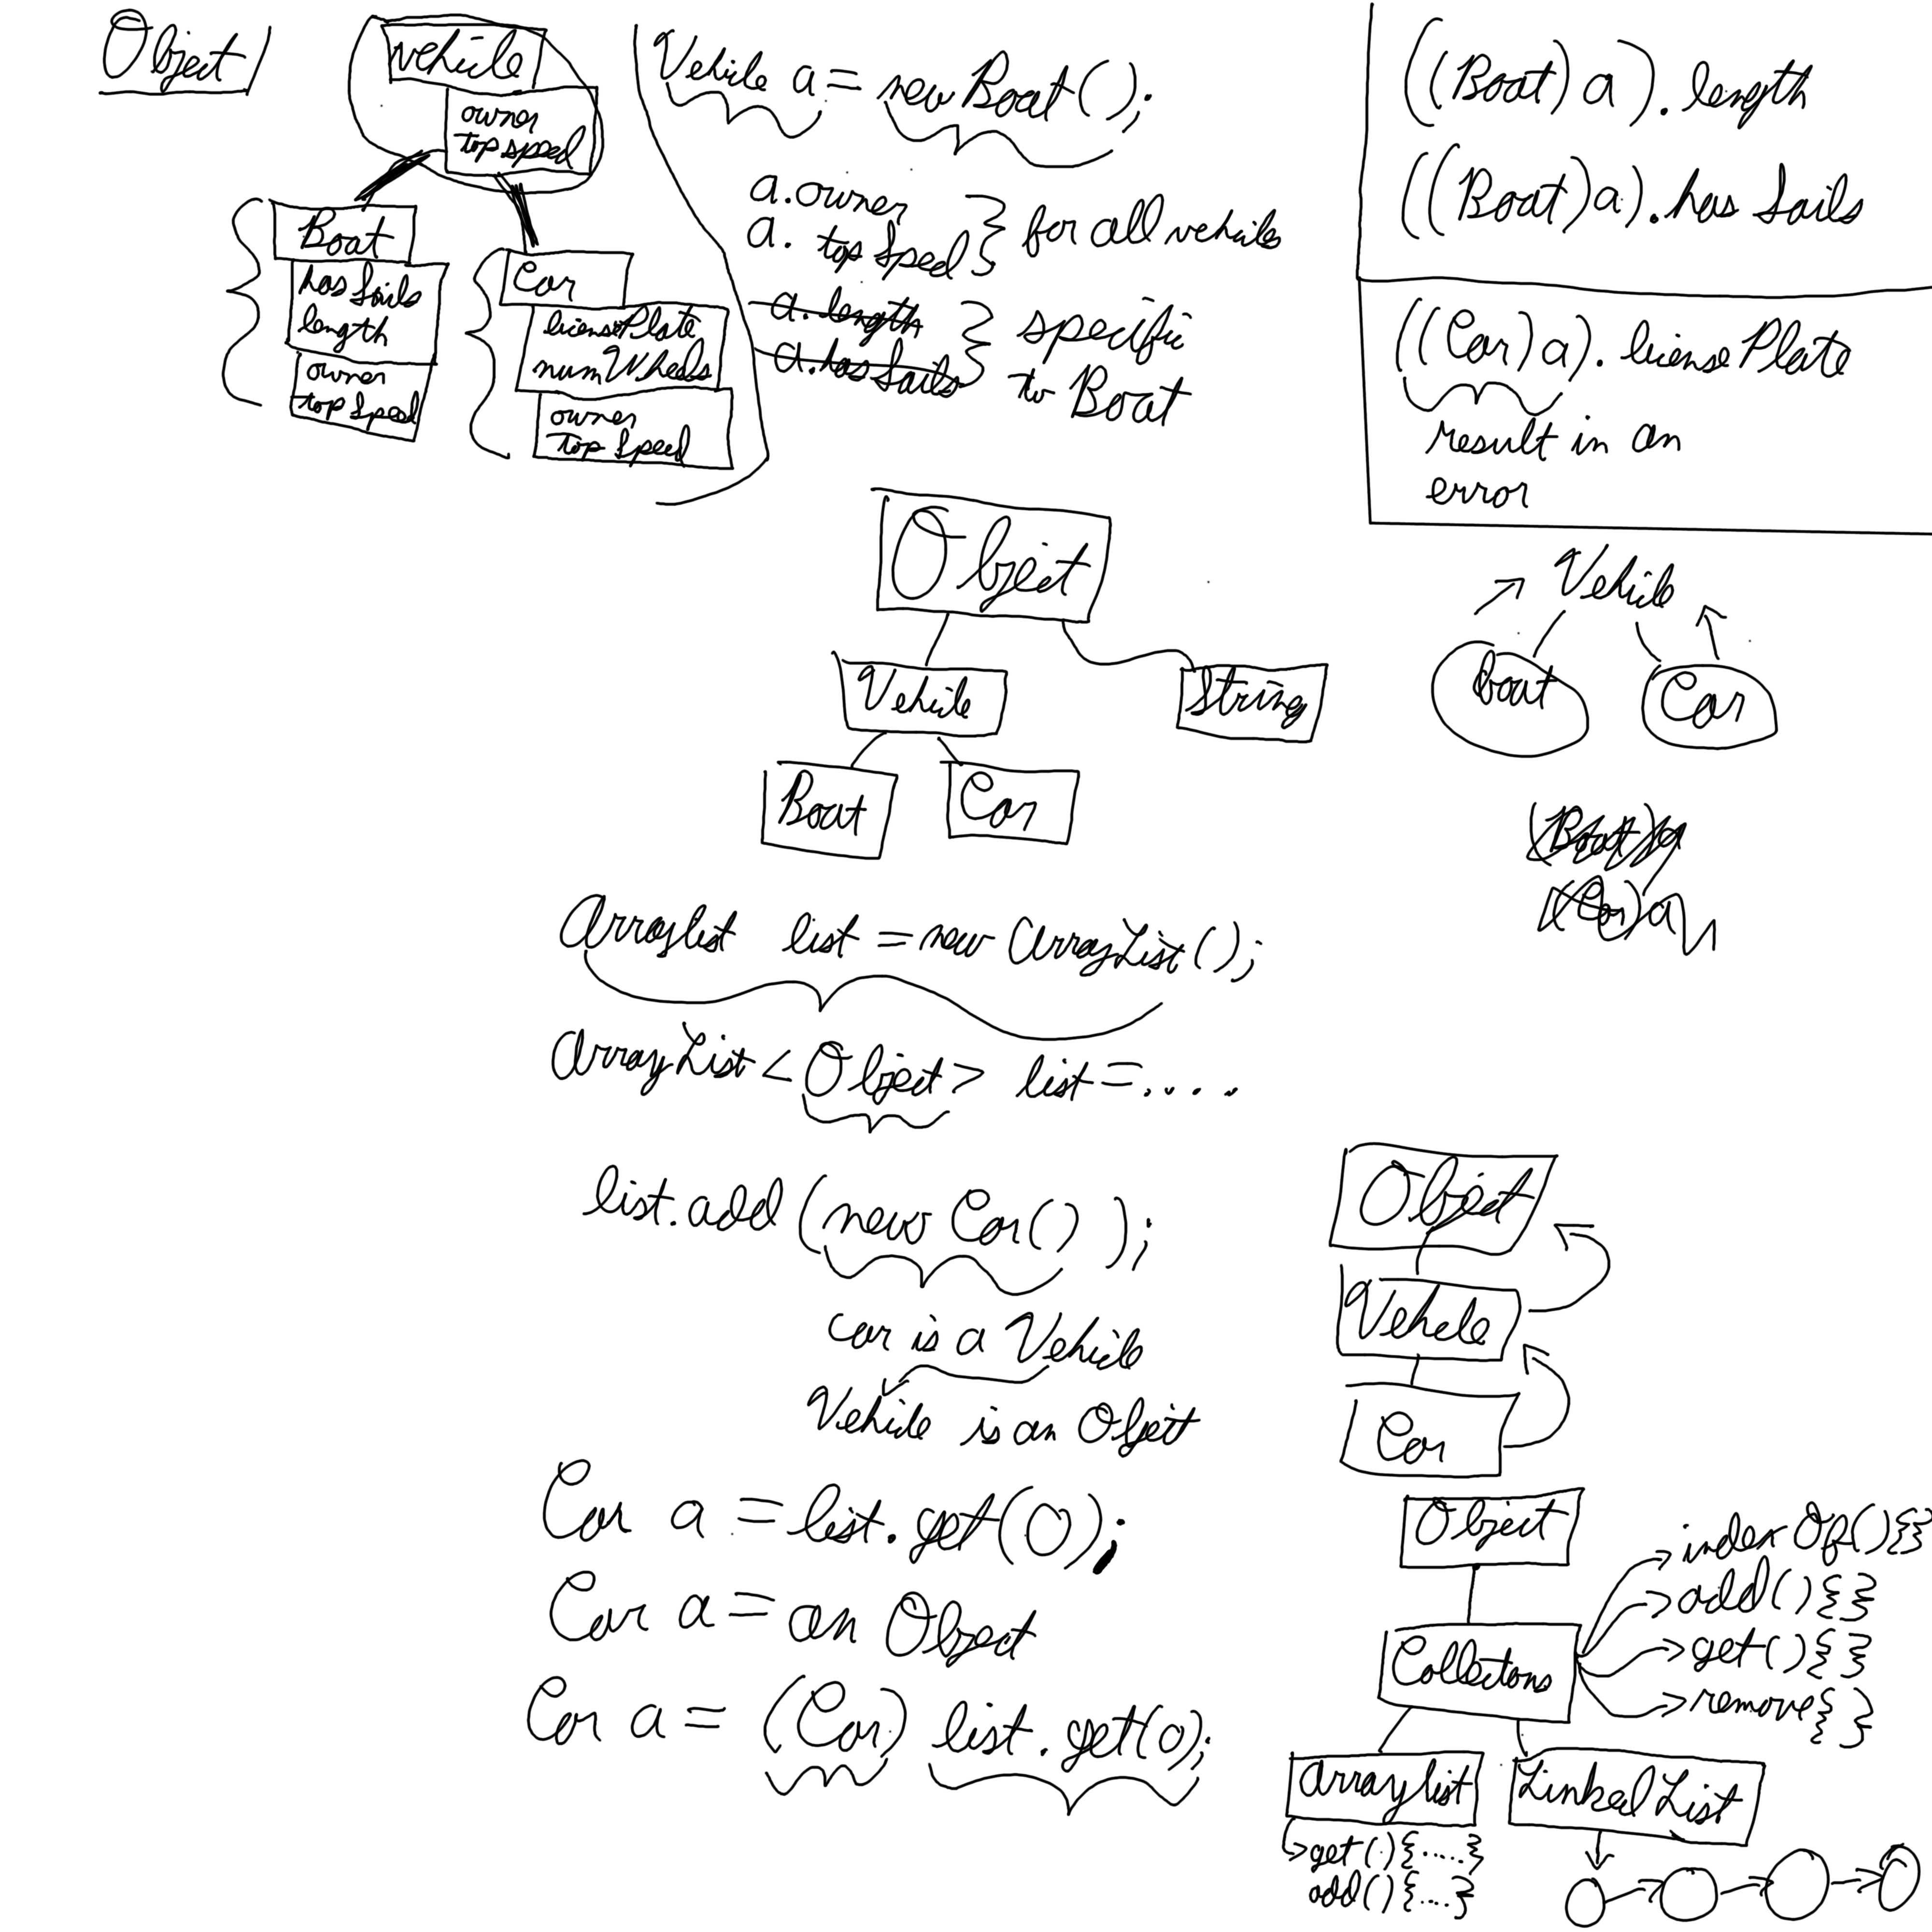 Object
Vehicle
owner
top speed
Boat
has Sails
length
owner
top Speed
Car
licensePlate
numWheels
owner
Top Speed
Vehicle a = new Boat();
a.owner
a. top Speed } for all vehicles
a.length
a.has Sails } specific to Boat
((Boat) a). length
((Boat) a). has Sails
((Car) a). licensePlate
result in an
error
Object
Vehicle
String
Boat
Car
Vehicle
boat
Car
(Boat) a
(Car) a
Arraylist list = new ArrayList();
ArrayList < Object > list = ....
list.add (new Car() );
car is a Vehicle
Vehicle is an Object
Car a = list.get(0);
Car a = an Object
Car a = (Car) list.get(0);
Object
Vehicle
Car
Object
Collections
indexOf(){}
add(){}
get(){}
remove{}
Arraylist
LinkedList
get(){....}
add(){....}